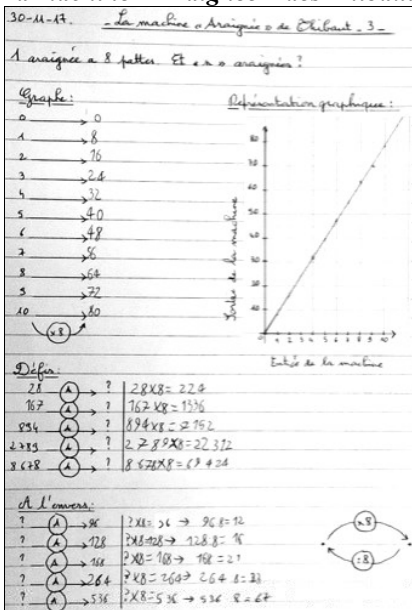 30-11-17. - La machine "Araignée" de Thibaut - 3 -
1 araignée a 8 pattes. Et araignées ?
Graphe :
0 → 0
1 → 8
2 → 16
3 → 24
4 → 32
5 → 40
6 → 48
7 → 56
8 → 64
9 → 72
10 → 80
×8
Représentation graphique :
Sortie de la machine
80
70
60
50
40
30
20
10
0 1 2 3 4 5 6 7 8 9 10
Entrée de la machine
Défis :
28 A → ? 28×8= 224
167 A → ? 167×8=1336
894 A → ? 894×8= 7152
2789 A → ? 2789×8=22312
8678 A → ? 8678×8=69424
A l'envers :
? A → 96 ?×8= 96 → 96:8=12
? A → 128 ?×8=128 → 128:8= 16
? A → 168 ?×8=168 → 168:8=21
? A → 264 ?×8=264 → 264:8=33
? A → 536 ?×8=536 → 536:8=67
×8
:8